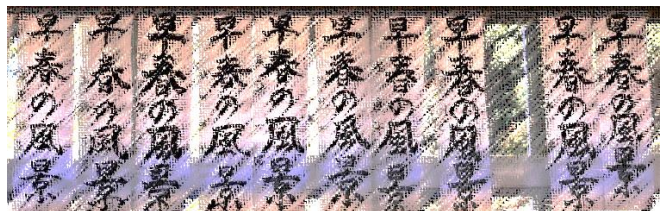 早春の風景
早春の風景
早春の風景
早春の風景
早春の風景
早春の風景
早春の風景
早春の風景
早春の風景
早春の風景